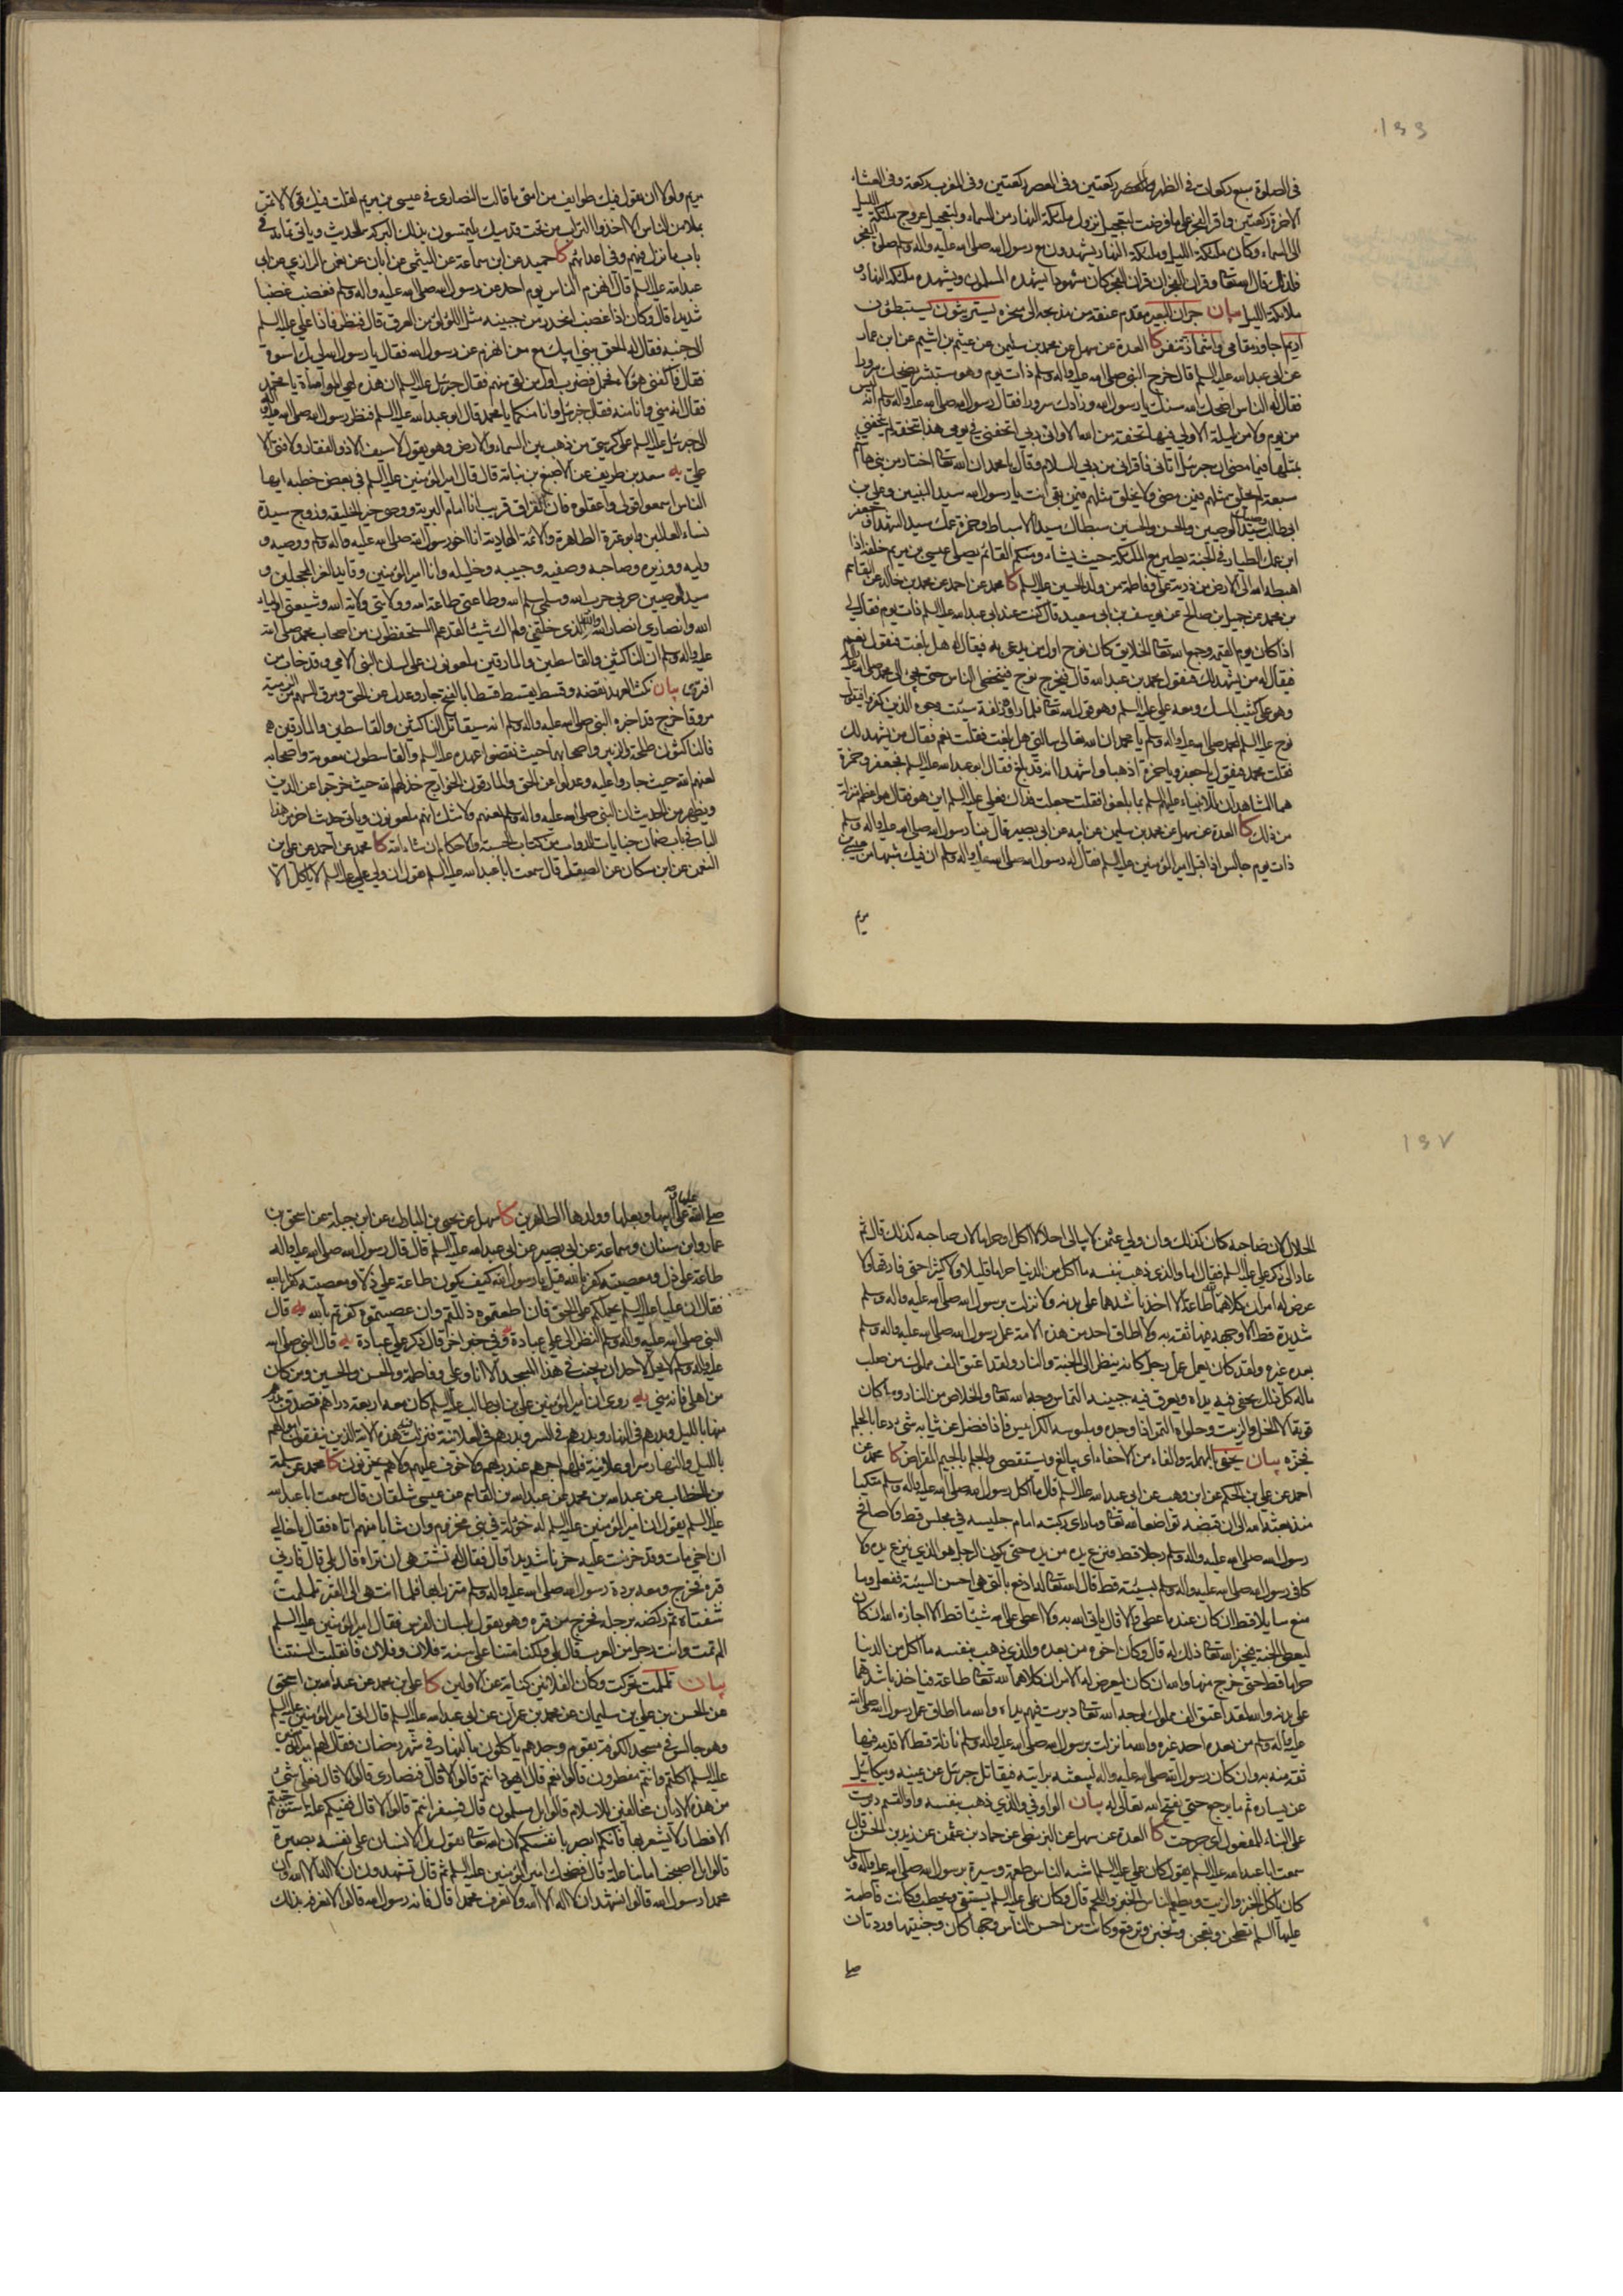 ١٣٦
فى الصلوة سبع ركعات فى الظهر ركعتين وفى العصر ركعتين وفى المغرب ركعة وفى العشاء
الاخرة ركعتين واقر الفجر على ما فرضت لتعجيل نزول ملئكة النهار من السماء ولتعجيل عروج ملئكة الليل
الى السماء وكان ملئكة الليل وملئكة النهار يشهدون مع رسول الله صلى الله عليه واله وسلم صلوة الفجر
فلذلك قال الله تعالى وقران الفجر ان قران الفجر كان مشهودا يشهده المسلمون ويشهده ملئكة النهار و
ملائكة الليل بيان جران البعير مقدم عنقه من مذبحه الى منحره يستريثون يستبطئون
اريم اجاوز مقامى واشمأز تنفر كا العدة عن سهل عن محمد بن سليمن عن عيثم بن اشيم عن ابن عمار
عن ابى عبد الله عليه السلم قال خرج النبى صلى الله عليه واله وسلم ذات يوم وهو مستبشر يضحك سرورا
فقال له الناس اضحك الله سنك يا رسول الله وزادك سرورا فقال رسول الله صلى الله عليه واله وسلم انه ليس
من يوم ولا من ليلة الا ولى فيها تحفة من الله الا وان ربى اتحفنى فى يومى هذا بتحفة لم يتحفنى
بمثلها فيما مضى ان جبرئيل اتانى فاقرانى من ربى السلام وقال يا محمد ان الله تعالى اختار من بنى هاشم
سبعة لم يخلق مثلهم فيمن مضى ولا يخلق مثلهم فيمن بقى انت يا رسول الله سيد النبيين وعلى بن
ابيطالب وصيك سيد الوصيين والحسن والحسين سبطاك سيدا الاسباط وحمزة عمك سيد الشهداء وجعفر
ابن عمك الطيار فى الجنة يطير مع الملئكة حيث يشاء ومنكم القائم يصلى عيسى بن مريم خلفه اذا
اهبطه الله الى الارض من ذرية على وفاطمة من ولد الحسين عليه السلم كا محمد عن احمد عن محمد بن خالد عن القاسم
بن محمد عن جميل بن صالح عن يوسف بن ابى سعيد قال كنت عند ابى عبد الله عليه السلم ذات يوم فقال لى
اذا كان يوم القيمة وجمع الله تعالى الخلايق كان نوح اول من يدعى به فيقال له هل بلغت فيقول نعم
فيقال له من يشهد لك فيقول محمد بن عبد الله قال فيخرج نوح فيتخطى الناس حتى يجئ الى محمد صلى الله عليه واله
وهو على كثيب المسك ومعه على عليه السلم وهو قول الله تعالى فلما راوه زلفة سيئت وجوه الذين كفروا فيقول
نوح عليه السلم لمحمد صلى الله عليه واله وسلم يا محمد ان الله تعالى سالنى هل بلغت فقلت نعم فقال من يشهد لك
فقلت محمد فيقول يا جعفر ويا حمزة اذهبا واشهدا انه قد بلغ فقال ابو عبد الله عليه السلم فجعفر وحمزة
هما الشاهدان للانبياء عليهم السلم بما بلغوا فقلت جعلت فداك فعلى عليه السلم اين هو فقال هو اعظم منزلة
من ذلك كا العدة عن سهل عن محمد بن سليمن عن ابيه عن ابى بصير قال بينا رسول الله صلى الله عليه واله وسلم
ذات يوم جالس اذا اقبل امير المؤمنين عليه السلم فقال له رسول الله صلى الله عليه واله وسلم ان فيك شبها من عيسى بن
مريم
مريم ولولا ان يقول فيك طوايف من امتى ما قالت النصارى فى عيسى بن مريم لقلت فيك قولا لا تمر
بملا من الناس الا اخذوا التراب من تحت قدميك يلتمسون بذلك البركة الحديث وياتى تمامه فى
باب ما نزل فيهم وفى اعدائهم كا حميد عن ابن سماعة عن الميثمى عن ابان عن نعمن الرازى عن ابى
عبد الله عليه السلم قال انهزم الناس يوم احد عن رسول الله صلى الله عليه واله وسلم فغضب غضبا
شديدا قال وكان اذا غضب انحدر من جبينه مثل اللؤلؤ من العرق قال فنظر فاذا على عليه السلم
الى جنبه فقال له الحق ببنى ابيك مع من انهزم عن رسول الله فقال يا رسول الله لى بك اسوة
فقال فاكفنى هؤلاء فحمل فضرب اول من لقى منهم فقال جبرئيل عليه السلم ان هذه لهى المواساة يا محمد
فقال انه منى وانا منه فقال جبرئيل وانا منكما يا محمد قال ابو عبد الله عليه السلم فنظر رسول الله صلى الله عليه واله
الى جبرئيل عليه السلم على كرسى من ذهب بين السماء والارض وهو يقول لا سيف الا ذو الفقار ولا فتى الا
على يه سعد بن طريف عن الاصبغ بن نباتة قال قال امير المؤمنين عليه السلم فى بعض خطبه ايها
الناس اسمعوا قولى واعقلوه فان الفراق قريب انا امام البرية ووصى خير الخليقة وزوج سيدة
نساء العالمين وابو عترة الطاهرة والائمة الهادية انا اخو رسول الله صلى الله عليه واله وسلم ووصيه و
وليه ووزيره وصاحبه وصفيه وحبيبه وخليله وانا امير المؤمنين وقايد الغر المحجلين و
سيد الوصيين حربى حرب الله وسلمى سلم الله وطاعتى طاعة الله وولايتى ولاية الله وشيعتى اولياء
الله وانصارى انصار الله والله الذى خلقنى ولم اك شيئا لقد علم المستحفظون من اصحاب محمد صلى الله
عليه واله وسلم ان الناكثين والقاسطين والمارقين ملعونون على لسان النبى الامى وقد خاب من
افترى بيان نكث العهد نقضه وقسط يقسط قسطا بالفتح جار وعدل عن الحق ومرق السهم من الرمية
مروقا خرج قد اخبره النبى صلى الله عليه واله وسلم انه سيقاتل الناكثين والقاسطين والمارقين هم
فالناكثون طلحة والزبير واصحابهما حيث نقضوا عهده عليه السلم والقاسطون معوية واصحابه
لعنهم الله حيث جاروا عليه وعدلوا عن الحق والمارقون الخوارج خذلهم الله حيث خرجوا عن الدين
ويظهر من الحديث ان النبى صلى الله عليه واله وسلم لعنهم ولا شك انهم ملعونون وياتى حديث اخر من هذا
الباب فى باب ضمان جنايات الدواب من كتاب الحسبة والاحكام ان شاء الله كا محمد عن احمد عن على بن
النعمن عن ابن مسكان عن الصيقل قال سمعت ابا عبد الله عليه السلم يقول ان ولى على عليه السلم لا ياكل الا
١٣٧
الحلال لان صاحبه كان كذلك وان ولى عثمن لا يبالى احلالا اكل او حراما لان صاحبه كذلك قال ثم
عاد الى ذكر على عليه السلم فقال اما والذى ذهب بنفسه ما اكل من الدنيا حراما قليلا ولا كثيرا حتى فارقها ولا
عرض له امران كلاهما لله طاعة الا اخذ باشدهما على بدنه ولا نزلت برسول الله صلى الله عليه واله وسلم
شديدة قط الا وجهه فيها ثقة به ولا اطاق احد من هذه الامة عمل رسول الله صلى الله عليه واله وسلم
بعده غيره ولقد كان يعمل عمل رجل كانه ينظر الى الجنة والنار ولقد اعتق الف مملوك من صلب
ماله كل ذلك تحفى فيه يداه ويعرق فيه جبينه التماس وجه الله تعالى والخلاص من النار وما كان
قوته الا الخل والزيت وحلواه التمر اذا وجده وملبوسه الكرابيس فاذا فضل عن ثيابه شئ دعا بالجلم
فجزه بيان تحفى بالمهملة والفاء من الاحفاء اى يبالغ ويستقصى والجلم بالجيم المقراض كا محمد عن
احمد عن على بن الحكم عن ابن وهب عن ابى عبد الله عليه السلم قال ما اكل رسول الله صلى الله عليه واله وسلم متكيا
منذ بعثه الله الى ان قبضه تواضعا لله تعالى وما راى ركبته امام جليسه فى مجلس قط ولا صافح
رسول الله صلى الله عليه واله وسلم رجلا قط فنزع يده من يده حتى يكون الرجل هو الذى ينزع يده ولا
كافى رسول الله صلى الله عليه واله وسلم بسيئة قط قال الله تعالى له ادفع بالتى هى احسن السيئة ففعل وما
منع سايلا قط ان كان عنده اعطى والا قال ياتى الله به ولا اعطى على الله شيئا قط الا اجازه الله ان كان
ليعطى الجنة فيجيز الله تعالى ذلك له قال وكان اخوه من بعده والذى ذهب بنفسه ما اكل من الدنيا
حراما قط حتى خرج منها والله ان كان ليعرض له الامران كلاهما لله تعالى طاعة فياخذ باشدهما
على بدنه والله لقد اعتق الف مملوك لوجه الله تعالى دبرت فيهم يداه والله ما اطاق عمل رسول الله صلى الله
عليه واله وسلم من بعده احد غيره والله ما نزلت برسول الله صلى الله عليه واله وسلم نازلة قط الا قدمه فيها
ثقة منه به وان كان رسول الله صلى الله عليه واله ليبعثه برايته فيقاتل جبرئيل عن يمينه وميكائيل
عن يساره ثم ما يرجع حتى يفتح الله تعالى له بيان الواو فى والذى ذهب بنفسه واو القسم دبرت
على البناء للمفعول اى جرحت كا العدة عن سهل عن البزنطى عن حماد بن عثمن عن زيد بن الحسن قال
سمعت ابا عبد الله عليه السلم يقول كان على عليه السلم اشبه الناس طعمة وسيرة برسول الله صلى الله عليه واله وسلم
كان ياكل الخبز والزيت ويطعم الناس الخبز واللحم قال وكان على عليه السلم يستقى ويحطب وكانت فاطمة
عليها السلم تطحن وتعجن وتخبز وترقع وكانت من احسن الناس وجها كان وجنتيها وردتان
صلى
صلى الله على ابيها وبعلها وولدها الطاهرين كا سهل عن يحيى بن المبارك عن ابن جبلة عن اسحق بن
عمار وابن سنان وسماعة عن ابى بصير عن ابى عبد الله عليه السلم قال قال رسول الله صلى الله عليه واله
طاعة على ذل ومعصيته كفر بالله قيل يا رسول الله كيف يكون طاعة على ذلا ومعصيته كفرا بالله
فقال ان عليا عليه السلم يحملكم على الحق فان اطعتموه ذللتم وان عصيتموه كفرتم بالله يه قال
النبى صلى الله عليه واله وسلم النظر الى على عبادة وفى خبر اخر قال ذكر على عبادة يه قال النبى صلى الله
عليه واله وسلم لا يحل لاحد ان يجنب فى هذا المسجد الا انا وعلى وفاطمة والحسن والحسين ومن كان
من اهلى فانه منى يه روى ان امير المؤمنين على بن ابى طالب عليه السلم كان معه اربعة دراهم فتصدق بدرهم
منها بالليل وبدرهم فى النهار وبدرهم فى السر وبدرهم فى العلانية فنزلت فيه هذه الاية الذين ينفقون اموالهم
بالليل والنهار سرا وعلانية فلهم اجرهم عند ربهم ولا خوف عليهم ولا هم يحزنون كا محمد عن سلمة
بن الخطاب عن عبد الله بن محمد عن عبد الله بن القاسم عن عيسى شلقان قال سمعت ابا عبد الله
عليه السلم يقول ان امير المؤمنين عليه السلم له خؤلة فى بنى مخزوم وان شابا منهم اتاه فقال يا خالى
ان اخى مات وقد حزنت عليه حزنا شديدا قال فقال له تشتهى ان تراه قال بلى قال فارنى
قبره فخرج ومعه بردة رسول الله صلى الله عليه واله وسلم متزرا بها فلما انتهى الى القبر تلملمت
شفتاه ثم ركضه برجله فخرج من قبره وهو يقول بلسان الفرس فقال امير المؤمنين عليه السلم
الم تمت وانت رجل من العرب قال بلى ولكنا متنا على سنة فلان وفلان فانقلبت السنتنا
بيان تلملمت تحركت وكان الفلانين كناية عن الاولين كا على بن محمد عن عبد الله بن اسحق
عن الحسن بن على بن سليمان عن محمد بن عمران عن ابى عبد الله عليه السلم قال اتى امير المؤمنين عليه السلم
وهو جالس فى مسجد الكوفة بقوم وجدهم ياكلون بالنهار فى شهر رمضان فقال لهم امير المؤمنين
عليه السلم اكلتم وانتم مفطرون قالوا نعم قال ايهود انتم قالوا لا قال فنصارى قالوا لا قال فعلى اى شئ
من هذه الاديان مخالفين للاسلام قالوا بل مسلمون قال فسفر انتم قالوا لا قال ففيكم علة استوجبتم
الافطار لا نشعر بها فانكم ابصر بانفسكم لان الله تعالى يقول بل الانسان على نفسه بصيرة
قالوا بل اصبحنا ما بنا علة قال فضحك امير المؤمنين عليه السلم ثم قال تشهدون ان لا اله الا الله وان
محمدا رسول الله قالوا نشهد ان لا اله الا الله ولا نعرف محمدا قال فانه رسول الله قالوا لا نعرفه بذلك